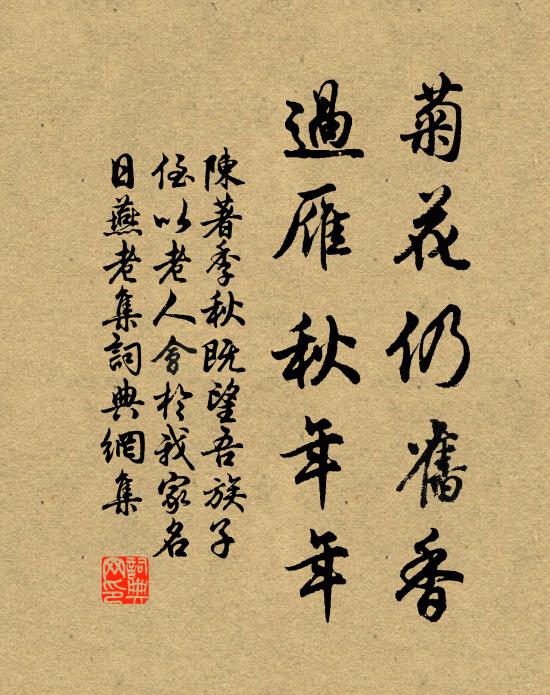 菊花仍舊香
過雁秋年年
陳著季秋既望吾族子
侄以老人會於我家名
日燕老集詞典網集
詞典
网印